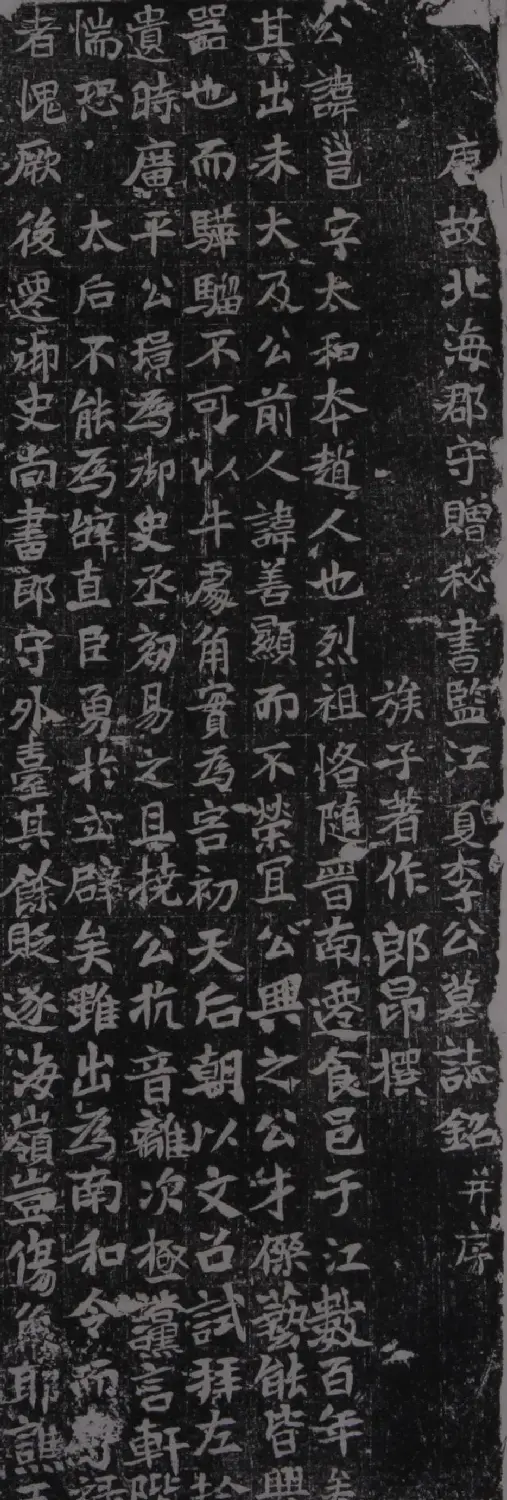 唐故北海郡守贈秘書監江夏李公墓誌銘并序
族子著作郎昂撰
公諱邕字太和本趙人也烈祖恪隨晉南遷食邑于江數百年矣
其出未大及公前人諱善顯而不榮宜公興之公才傑藝能皆興
器也而驊騮不可以牛處角實為害初天后朝以文召試拜左拾
遺時廣平公璟為御史丞劾易之且撓公抗音離次極讜言軒陛
惴恐太后不能為辭直臣勇於立辟矣雖出為南和令而
者愧厥後遷御史尚書郎守外臺其餘貶逐海嶺豈傷焉耶譙